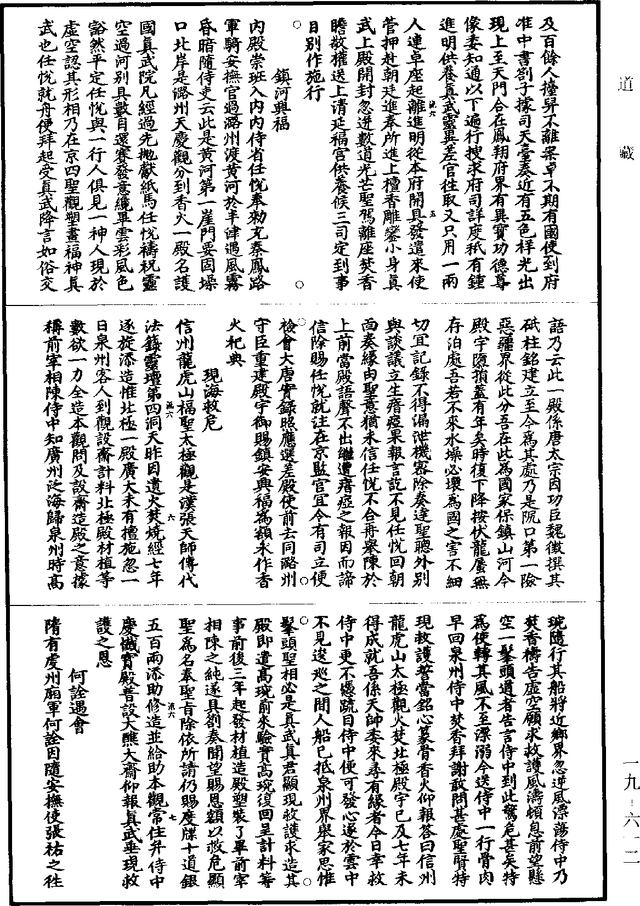 道藏
及百餘人擡舁不離案卓不期有國使到府
准中書劄子據司天臺奏近有五色祥光出
現上至天門合在鳳翔府界有異寶功德尊
像委知通以下遍行搜求府司詳度秖有鍾
進明供養真武靈異差官往取又只用一兩
人連卓座起離進明從本府開具發遣來使
管押赴朝廷進奉所進上檀香雕鑾小身真
武上殿開封忽迸數道光芒聖駕離座焚香
瞻敬權送上清延福宮供養候三司定到事
日別作施行
鎮河興福
內殿崇班入內內侍省任悅奉勑充秦鳳路
軍騎安撫官過潞州渡黃河於半津遇風霧
昏暗隨侍吏云此是黃河第一崖門要固壕
口北岸是潞州天慶觀分到香火一殿名護
國真武院凡經過先拋獻紙馬任悅禱祝靈
空過河別具數目還賽發意纔畢雲彩風色
豁然平定任悅與一行人俱見一神人現於
虛空認其形相乃在京四聖觀塑畫福神真
武也任悅就舟便拜起受真武降言如俗交
語乃云此一殿係唐太宗因功臣魏徵撰其
砥柱銘建立至今為其處乃是阮口第一險
惡疆界從此分吾在此為國家保鎮山河今
殿宇隳損蓋有年矣時復下降按伏龍蜃無
存泊處吾若不來水燥必壞為國之害不細
切宜記錄不得漏泄機密除奏達聖聽外別
與談議立生瘖瘂果報言訖不見任悅回朝
面奏緣由聖意猶未信任悅不合再舉陳於
上前當殿語聲不出繼遭瘖瘂之報因而諦
信除賜任悅就注在京監官宜令有司立便
檢會大唐實錄照應選差殿使前去同潞州
守臣重建殿宇御賜鎮安興福為額永作香
火祀典
現海救危
信州龍虎山福聖太極觀是漢張天師傳代
法籙靈壇第四洞天昨因遺火焚燒經七年
逐旋添造惟北極一殿廣大未有擅施忽一
日泉州客人到觀設齋計料北極殿材植等
數欲一力全造本觀問及設齋造殿之意據
稱前宰相陳侍中知廣州泛海歸泉州時高
琬隨行其船將近鄉界忽逆風漂蕩侍中乃
焚香禱告虛空願求救護風濤頓息前望懸
空一髼頭道者告言侍中到此驚危甚矣特
為使轉其風不至漂溺令送侍中一行骨肉
早回泉州侍中焚香拜謝敢問甚處聖賢特
現救護誓當銘心篆骨香火仰報答曰信州
龍虎山太極觀火焚北極殿宇已及七年未
得成就吾係天師委來尋有緣者今日幸救
侍中更不懇疏目侍中便可發心遂於雲中
不見逡巡之間人船已抵泉州界舉家思惟
髼頭聖相必是真武真君顯現救護求造其
殿即遣高琬前來驗實高琬復回呈計料等
事前後三年起發材植造殿塑裝了畢前宰
相陳之純遂具劄奏聞望賜恩額以救危顯
聖為名奉聖旨除依所請仍賜度牒十道銀
五百兩添助修造並給助本觀常住升侍中
慶懺寶殿普設大醮大齋仰報真武垂現救
護之恩
何詮遇會
隋有虔州廂軍何詮因隨安撫使張祐之往
一九·六一二